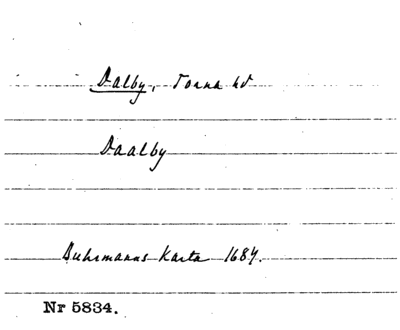 Dalby, Torna hd
Daalby
Buhrmanns Karta 1684.
Nr 5834.